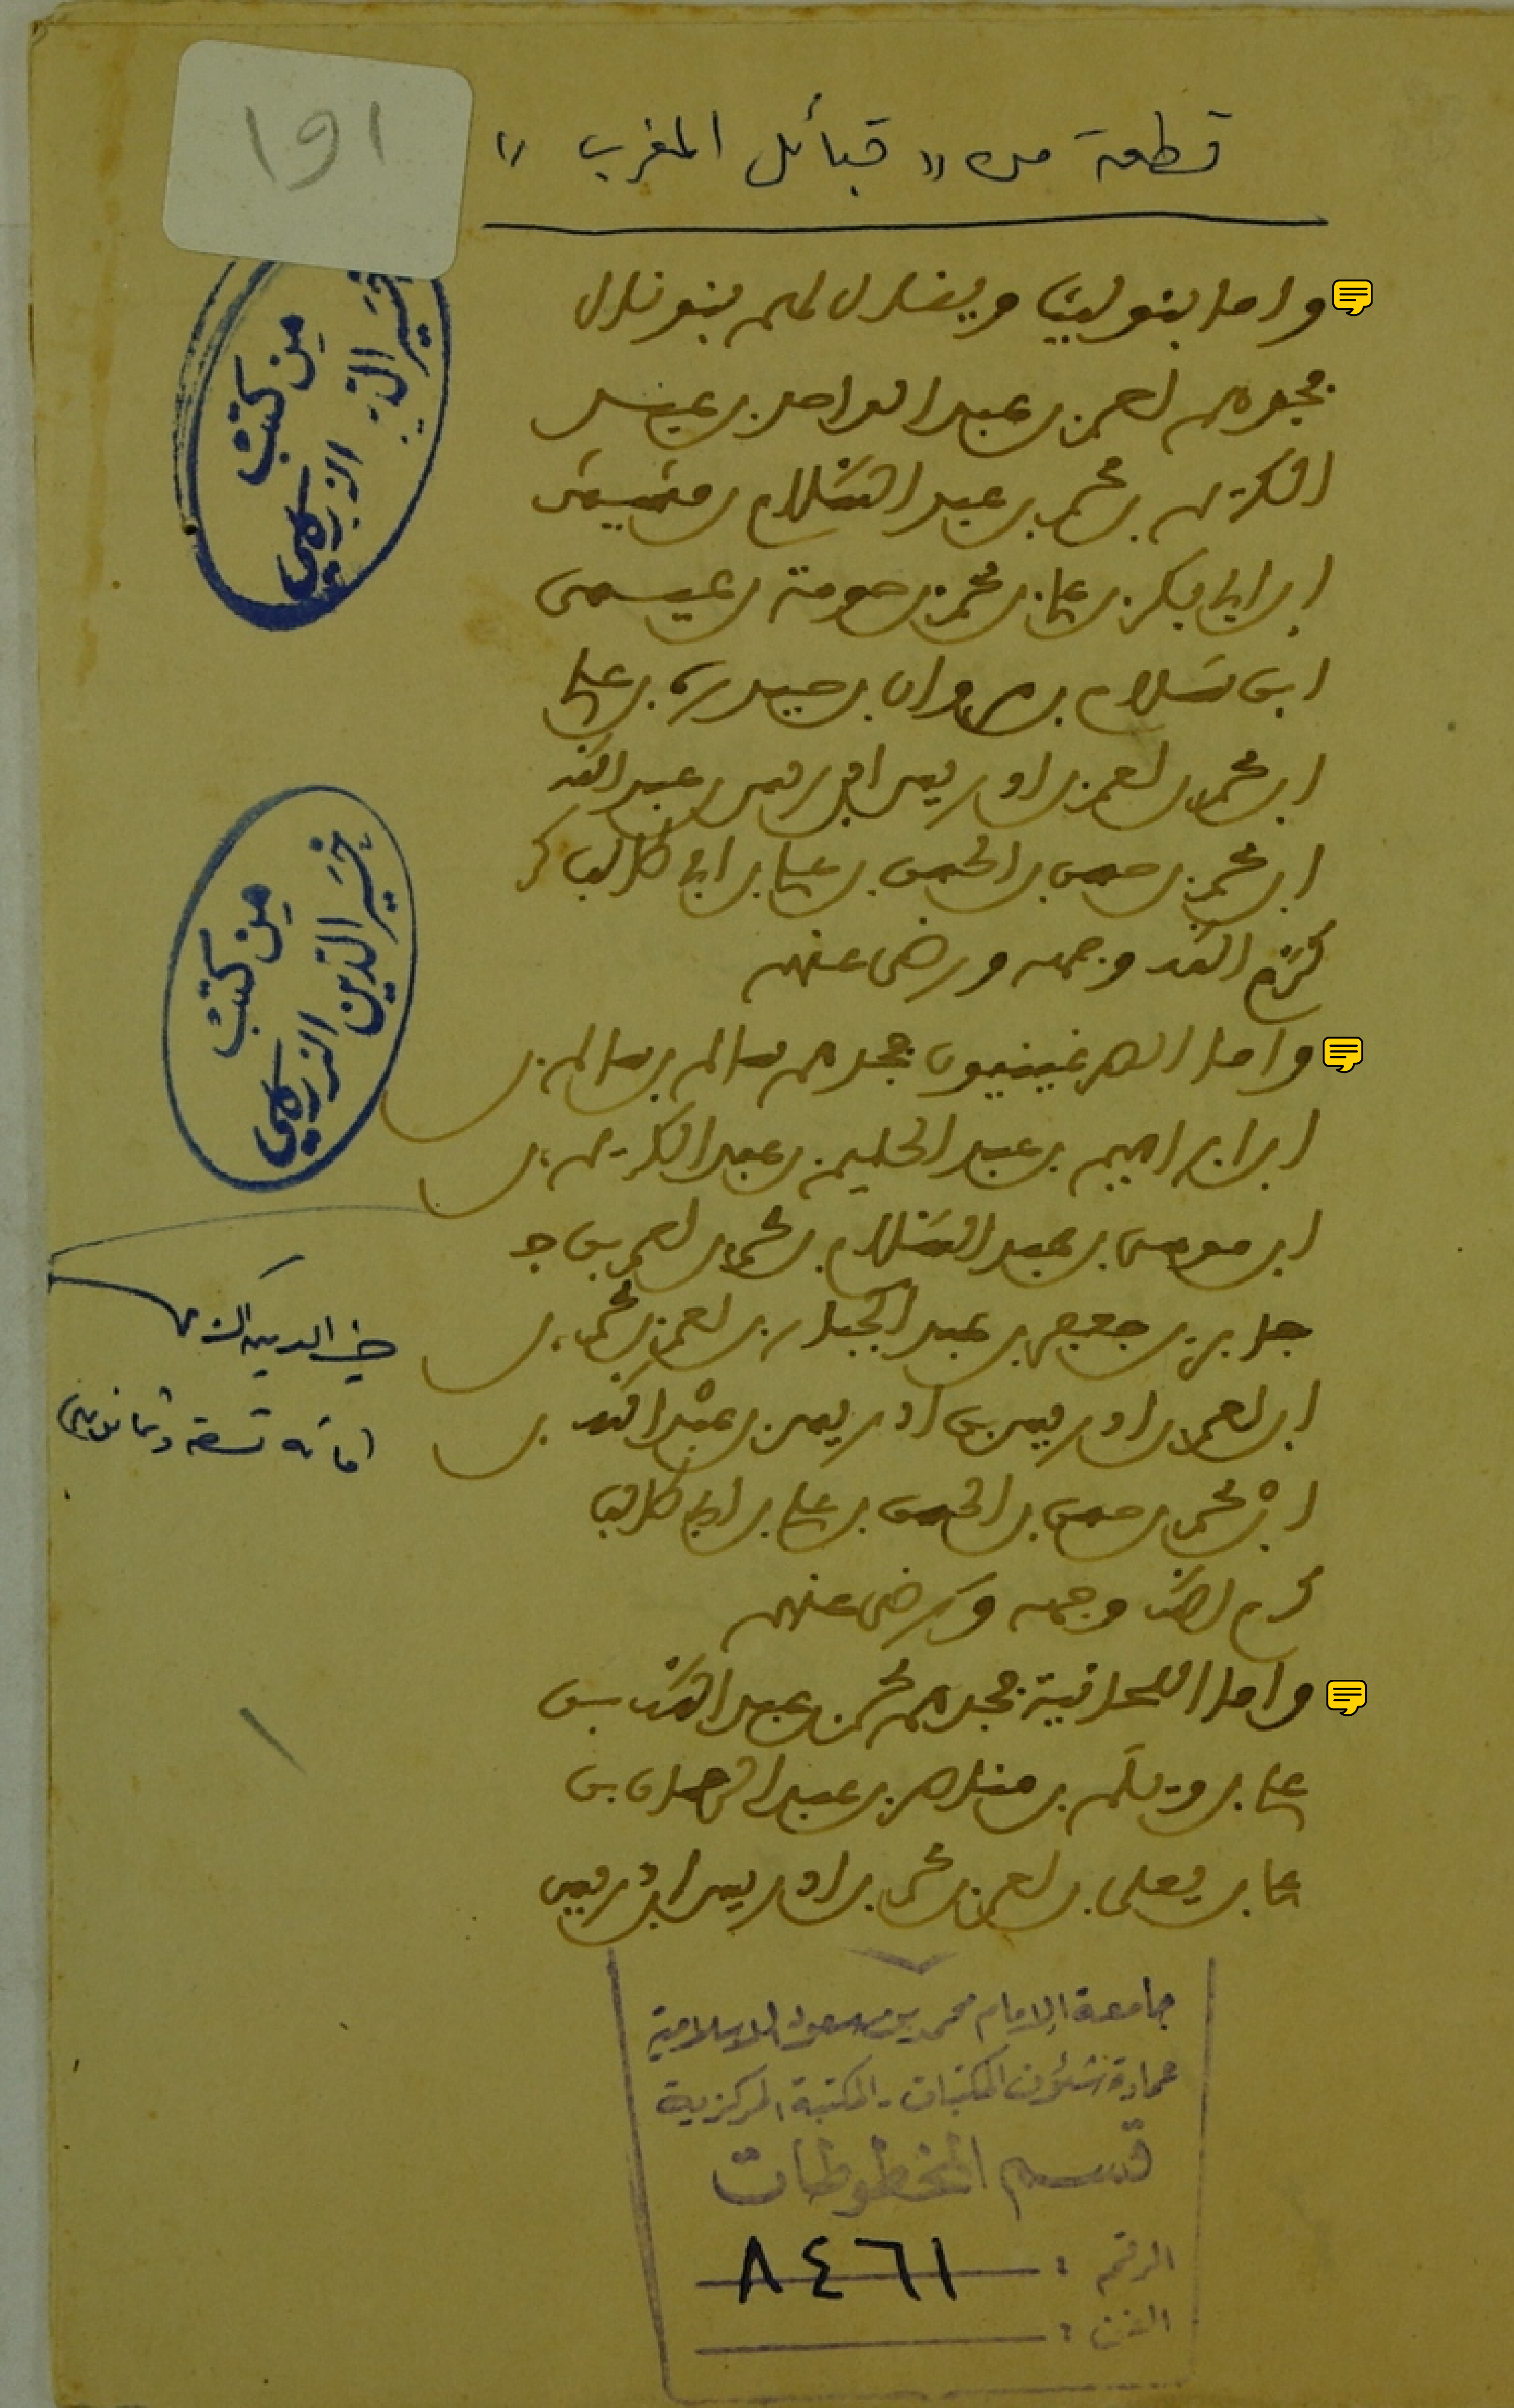 ١٩١
قطعة من «قبائل المغرب»
واما بنوليث ويقال لهم بنو نال
فجدهم احمد بن عبد الواحد بن
الكريم بن محمد بن عبد السلام بن مشيش
ابن ابي بكر بن علي بن محمد بن حرمة بن عيسى
ابن سلام بن مروان بن حيدرة بن علي
ابن محمد بن احمد بن ادريس ابن ادريس بن عبد الله
ابن محمد بن حسن بن الحسن بن علي بن ابي طالب كر
كرم الله وجهه ورضي عنهم
واما فجدهم سالم بن سالم بن
ابن ابراهيم بن عبد الحليم بن عبد الكريم بن
ابن موسى بن عبد السلام بن محمد بن احمد بن جـ
جابر بن جعفر بن عبد الجبار بن احمد بن محمد بن
ابن احمد بن ادريس بن ادريس بن عبد الله بن
ابن محمد بن حسن بن الحسن بن علي بن ابي طالب
كرم الله وجهه ورضي عنهم
واما فجدهم محمد بن عبد الله بن
علي بن بن مناصر بن عبد الرحمان بن
علي بن يعلى بن احمد بن محمد بن ادريس ابن ادريس
من كتب
خير الدين الزركلي
من كتب
خير الدين الزركلي
خير الدين
جامعة الإمام محمد بن سعود الإسلامية
عمادة شئون المكتبات - المكتبة المركزية
قسم المخطوطات
الرقم : ٨٤٦١
الفن :